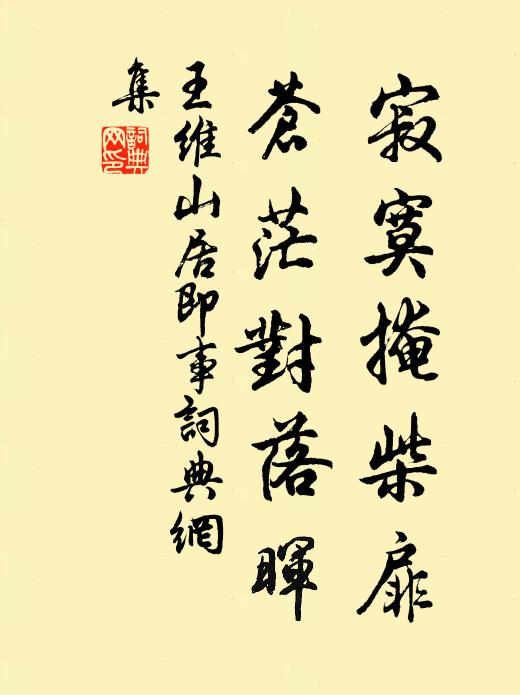 寂寞掩柴扉
蒼茫對落暉
王維山居即事詞典網
集
詞典
网印